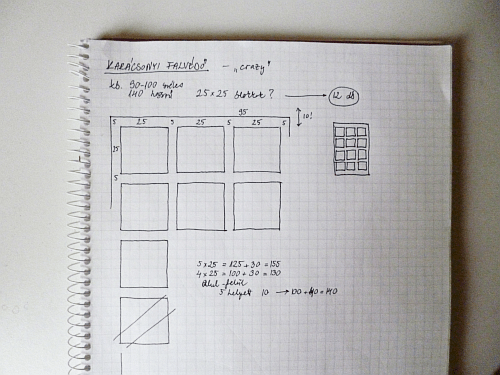 KARÁCSONYI FALVÉDŐ - „crazy"
kb. 90-100 széles
140 hosszú 25×25 blokkok? → 12 db
95
5 25 5 25 5 25 5
10!
25
5
5×25 = 125+30 = 155
4×25 = 100+30 = 130
alul-felül
5 helyett 10 → 100+40=140